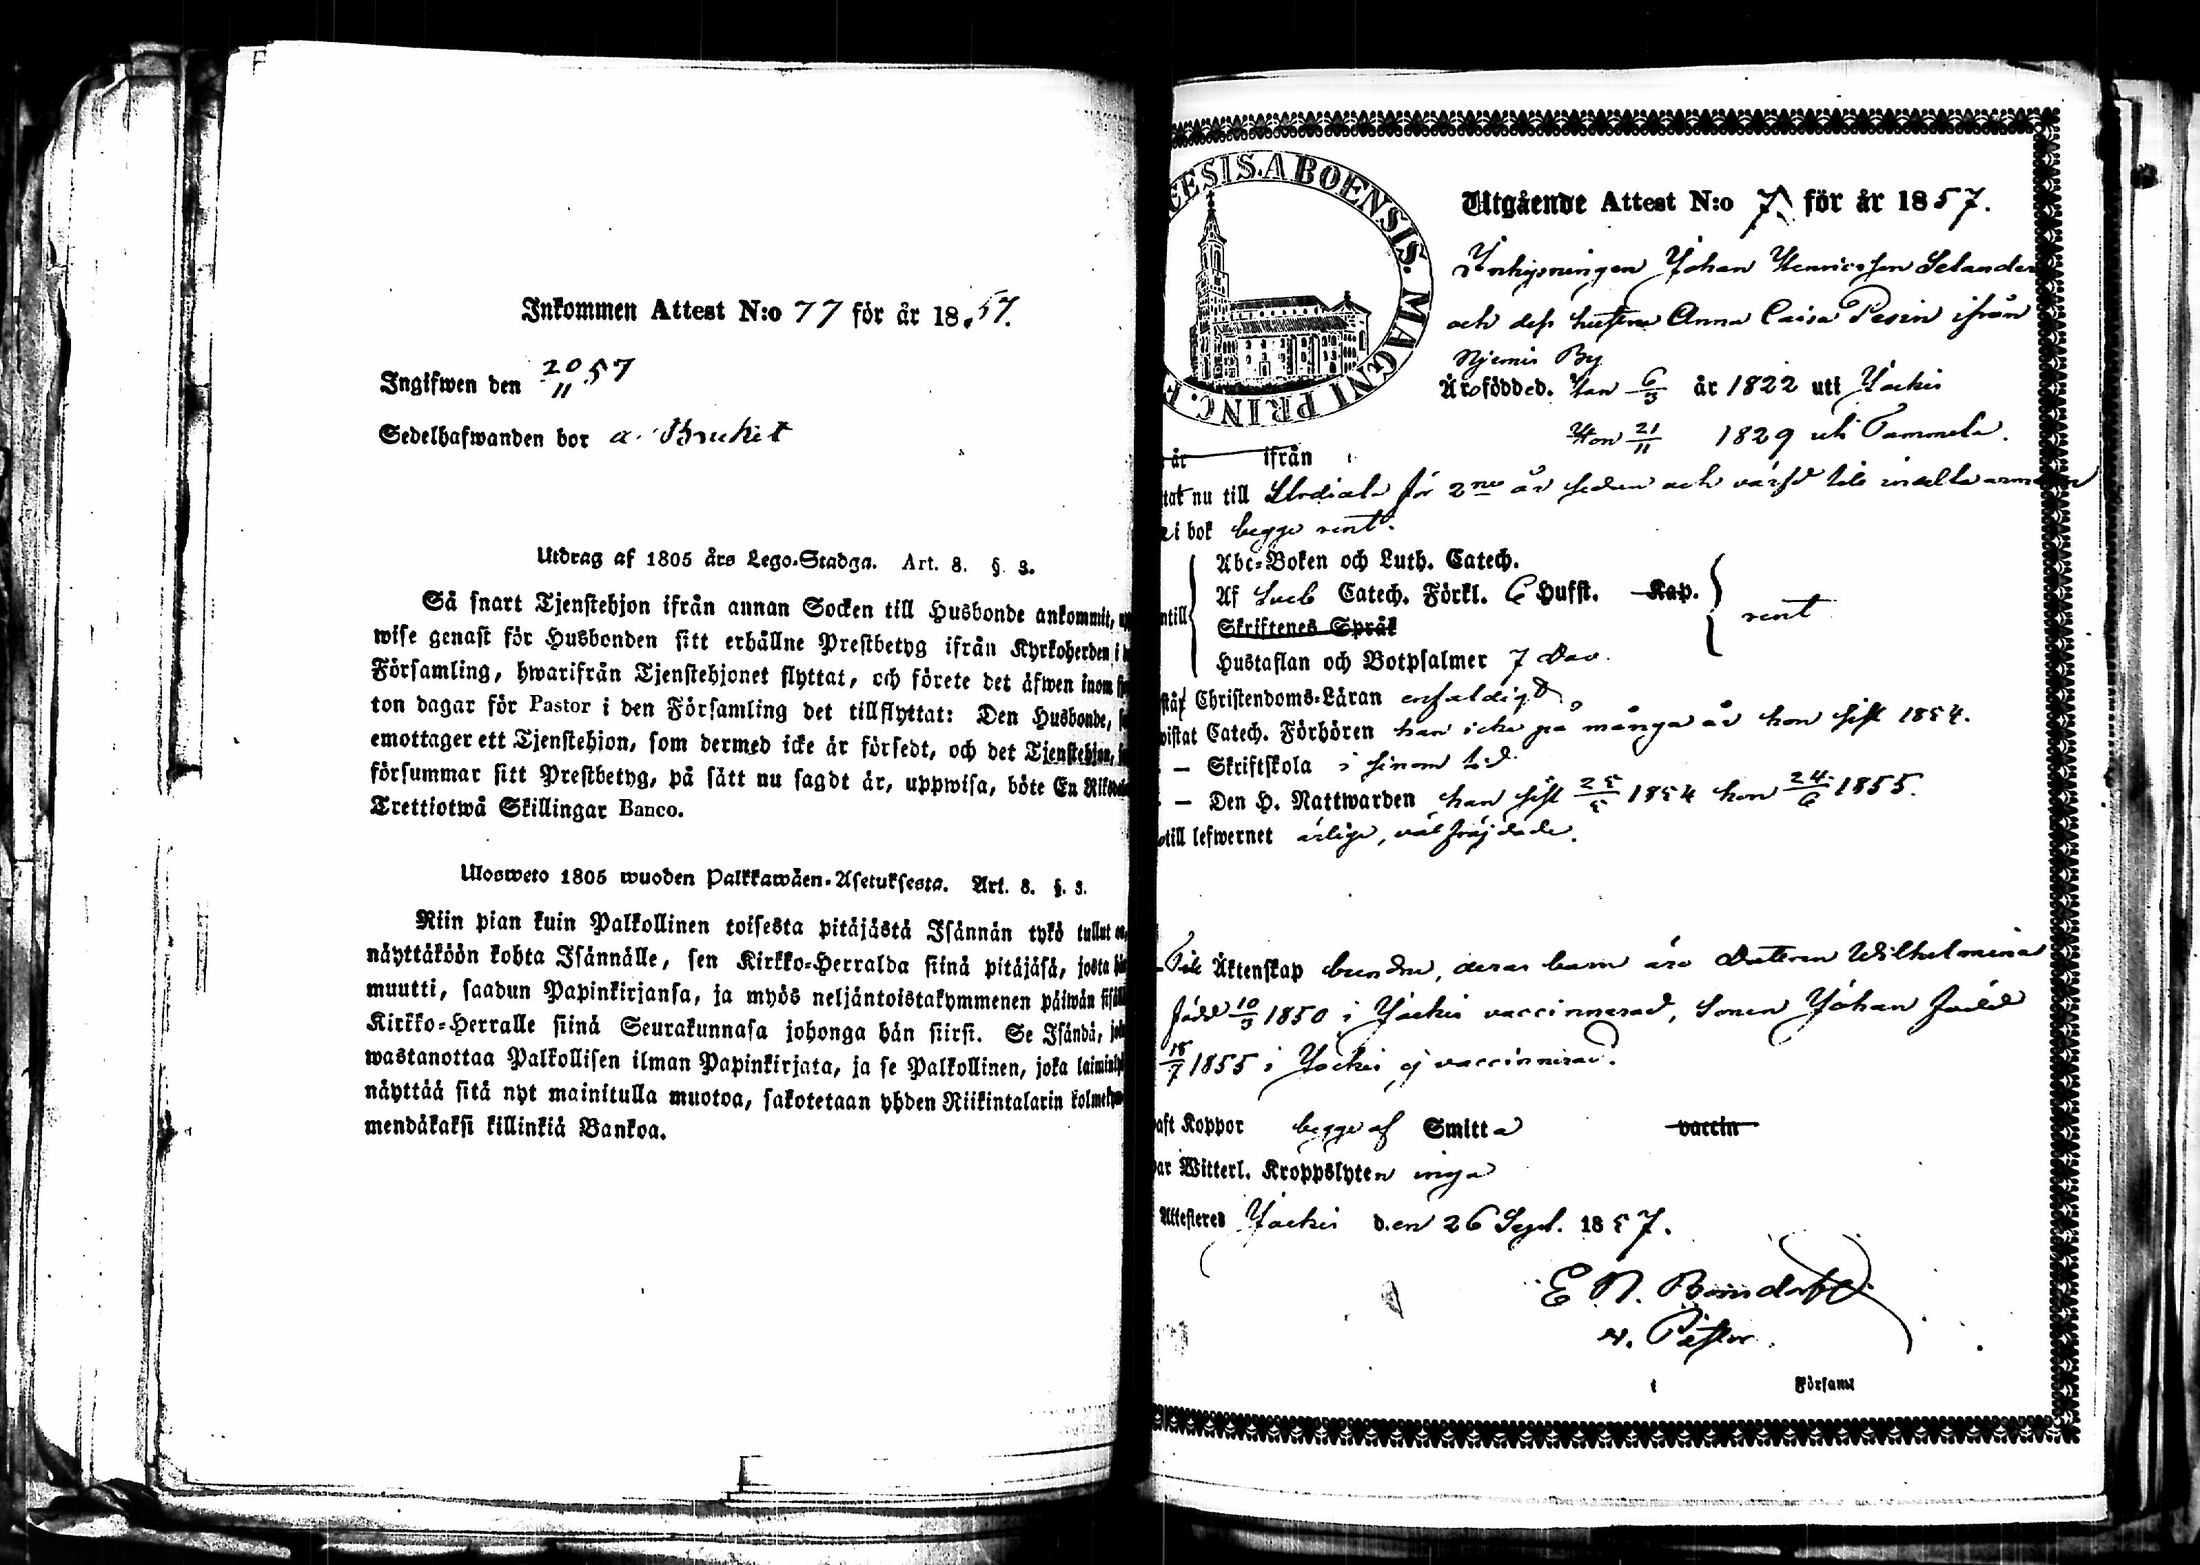 Inkommen Attest N:o 77 för år 1857.
Ingifwen den 20/11 57
Sedelhafwanden bor a. Bruket
Utdrag af 1805 års Lego-Stadga. Art. 8. §. 3.
Så snart Tjenstehjon ifrån annan Socken till Husbonde ankommit,
wise genast för Husbonden sitt erhållne Prestbetyg ifrån Kyrkoherden i
Församling, hwarifrån Tjenstehjonet flyttat, och förete det äfwen inom
ton dagar för Pastor i den Församling det tillflyttat: Den Husbonde,
emottager ett Tjenstehjon, som dermed icke är försedt, och det Tjenstehjon,
försummar sitt Prestbetyg, på sätt nu sagdt är, uppwisa, böte En Riksdaler
Trettiotwå Skillingar Banco.
Ulosweto 1805 wuoden Palkkawäen-Asetuksesta. Art. 8. §. 3.
Niin pian kuin Palkollinen toisesta pitäjästä Isännän tykö tullut on,
näyttäköön kohta Isännälle, sen Kirkko-Herralda siinä pitäjäsä, josta hän
muutti, saadun Papinkirjansa, ja myös neljäntoistakymmenen päiwän sisällä
Kirkko-Herralle siinä Seurakunnasa johonga hän siirsi. Se Isändä, joka
wastanottaa Palkollisen ilman Papinkirjata, ja se Palkollinen, joka
näyttää sitä nyt mainitulla muotoa, sakotetaan yhden Riikintalarin kolmekym-
mendäkaksi killinkiä Bankoa.
ESIS. ABOENSIS. MAGNI PRINC.
Utgående Attest N:o 7 för år 1857.
Inhysningen Johan Henricsson Selander
och dess hustru Anna Caisa Pesin ifrån
Njemis By
Äro födde d. Han 6/3 år 1822 uti Jockis
Hon 21/11 1829 uti Tammela.
år ifrån
tat nu till Urdiala för 2ne år sedan och
i bok begge rent.
Abc-Boken och Luth. Catech.
Af Sveb Catech. Förkl. 6 Hufst. Kap.
ntill rent
Skriftenes Språk
Hustaflan och Botpsalmer 7 Dav.
står Christendoms-Läran enfaldigt
wistat Catech. Förhören han icke på många år hon sist 1854.
— Skriftskola i sinom tid
— Den H. Nattwarden han sist 25/5 1854 hon 24/6 1855.
till lefwernet ärlige, välfräjdade.
Till Äktenskap bundne, deras barn äro Dottren Wilhelmina
född 10/3 1850 i Jockis vaccinnerad, Sonen Johan född
18/7 1855 i Jockis ej vaccinnerad.
aft Koppor begge af Smitta vaccin
ar Witterl. Kroppslyten inga
Attesteres Jockis den 26 Sept. 1857.
E N.
v. Pastor.
i Församl